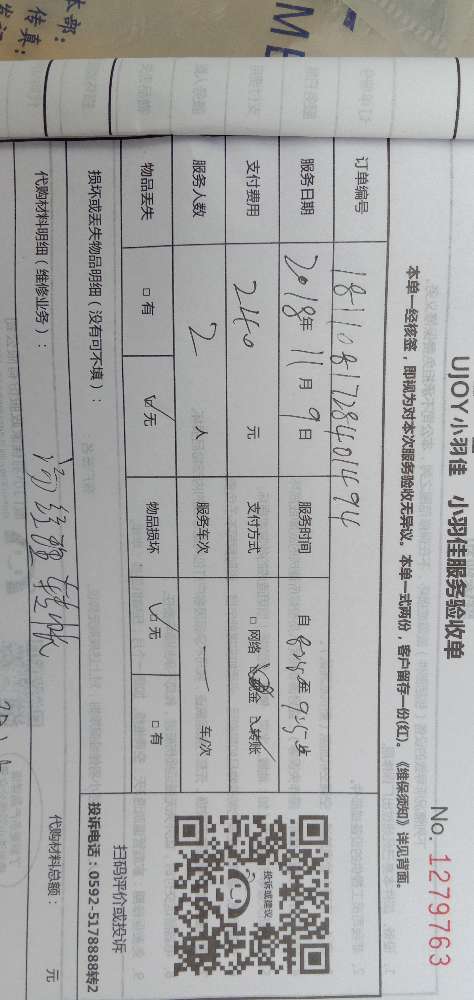 UJOY小羽佳 小羽佳服务验收单
No. 1279763
本单一经核签，即视为对本次服务验收无异议。本单一式两份，客户留存一份(红)。《维保须知》详见背面。
订单编号 1811081728401494
服务日期 2018年11月9日 服务时间 自8:25至9:55止
支付费用 240 元 支付方式 □网络 ☑现金 ☑转账
服务人数 2 人 服务车次 一 车/次
物品丢失 □有 ☑无 物品损坏 ☑无 □有
投诉或建议
扫码评价或投诉
损坏或丢失物品明细（没有可不填）：
投诉电话：0592-5178888转2
代购材料明细（维修业务）：
代购材料总额： 元
经理转账